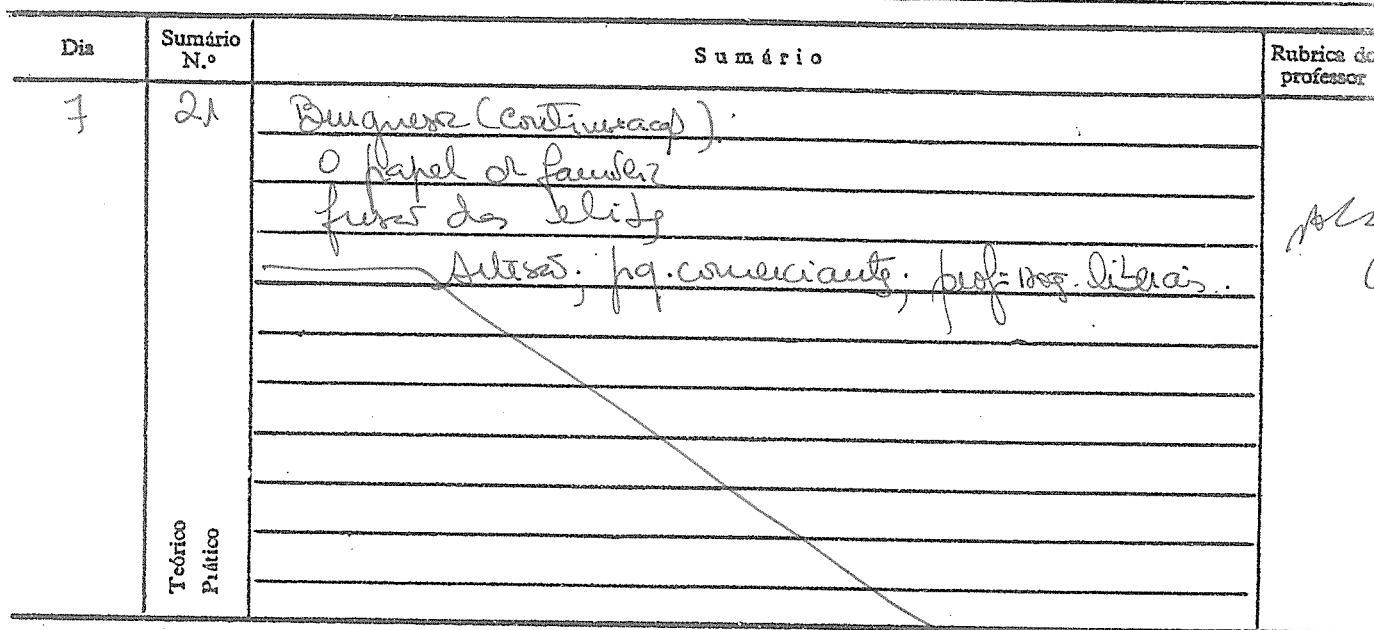 Dia
Sumário N.º
Sumário
Rubrica do professor
7
21
Burguesia (continuação).
O papel da família
fusão das elites
Artesãos; pq. comerciantes; profissões liberais.
Teórico
Prático